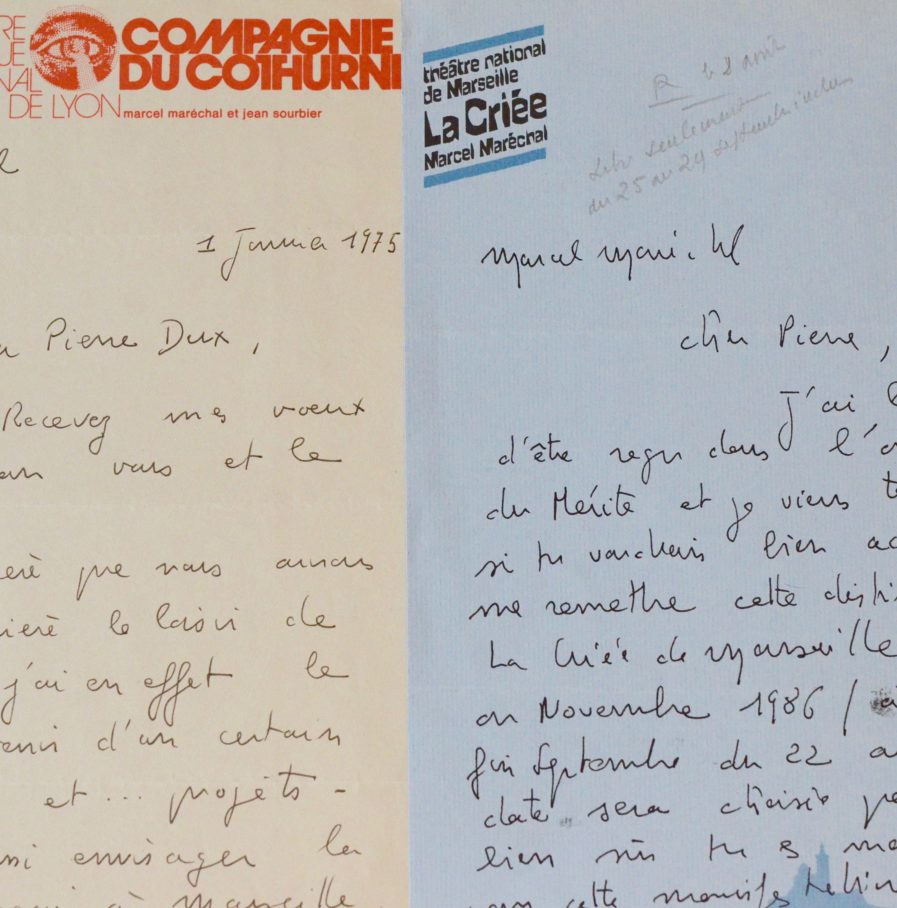 RE
UE
NAL
DE LYON
COMPAGNIE
DU COTHURNE
marcel maréchal et jean sourbier
1 Janvier 1975
Pierre Dux,
Recevez mes voeux
vous et le
que nous aurons
le loisir de
j'ai en effet le
d'un certain
et... projets -
envisager la
à Marseille
théâtre national
de Marseille
La Criée
Marcel Maréchal
R le 2 avril
seulement
du 25 au 29 septembre inclus
Marcel Maréchal
cher Pierre,
J'ai
d'être reçu dans l'
du Mérite et je viens
si tu voudrais bien
me remettre cette
La Criée de Marseille
en Novembre 1986 /
fin Septembre du 22
date sera choisie
bien sûr tu es
cette